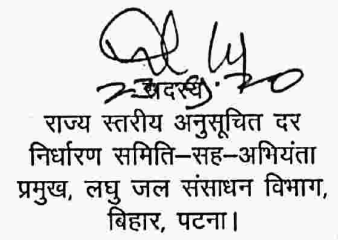 सदस्य
राज्य स्तरीय अनुसूचित दर
निर्धारण समिति–सह–अभियंता
प्रमुख, लघु जल संसाधन विभाग,
बिहार, पटना।